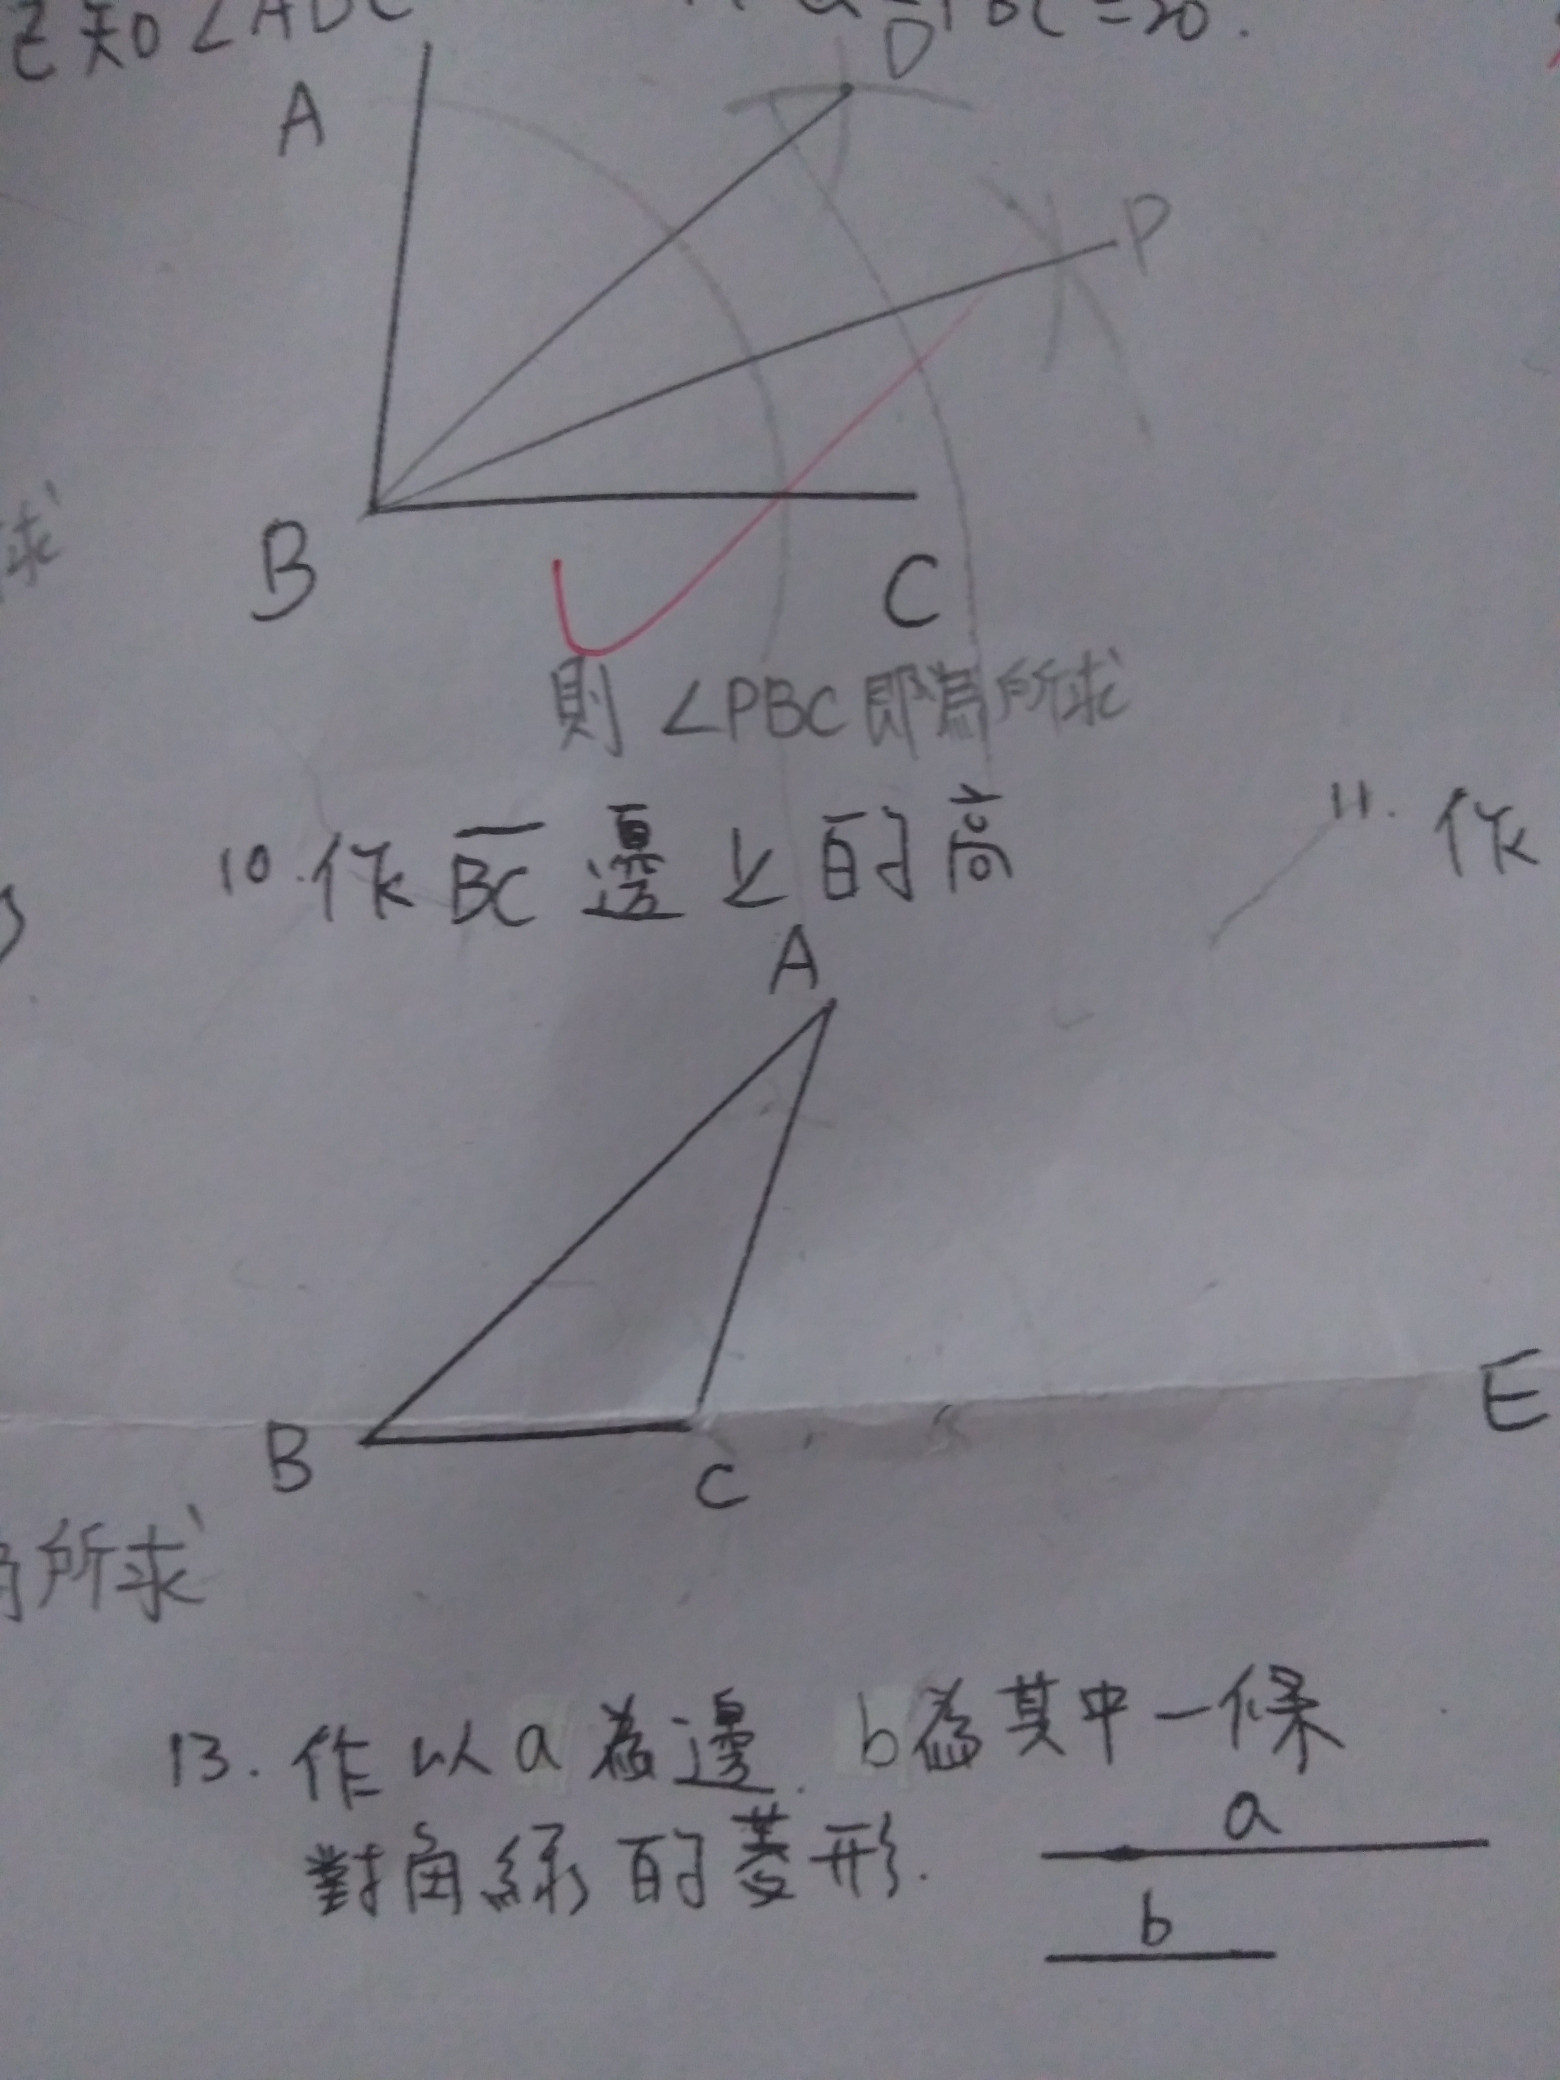 已知∠ABC
BC=20
A
D
P
B
C
則∠PBC即為所求
10.作BC邊上的高
11.作
A
B
C
E
所求
13.作以a為邊.b為其中一條
對角線的菱形.
a
b